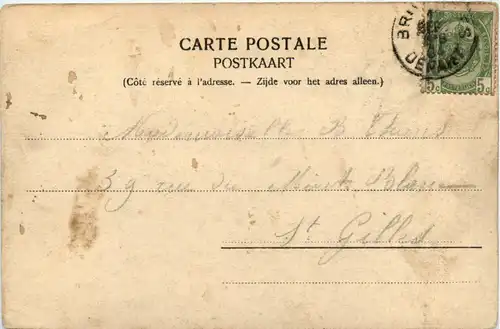 CARTE POSTALE
POSTKAART
(Côté réservé à l'adresse. — Zijde voor het adres alleen.)
DEPART
5c 5c
B
39 rue du Mont Blanc
St Gilles